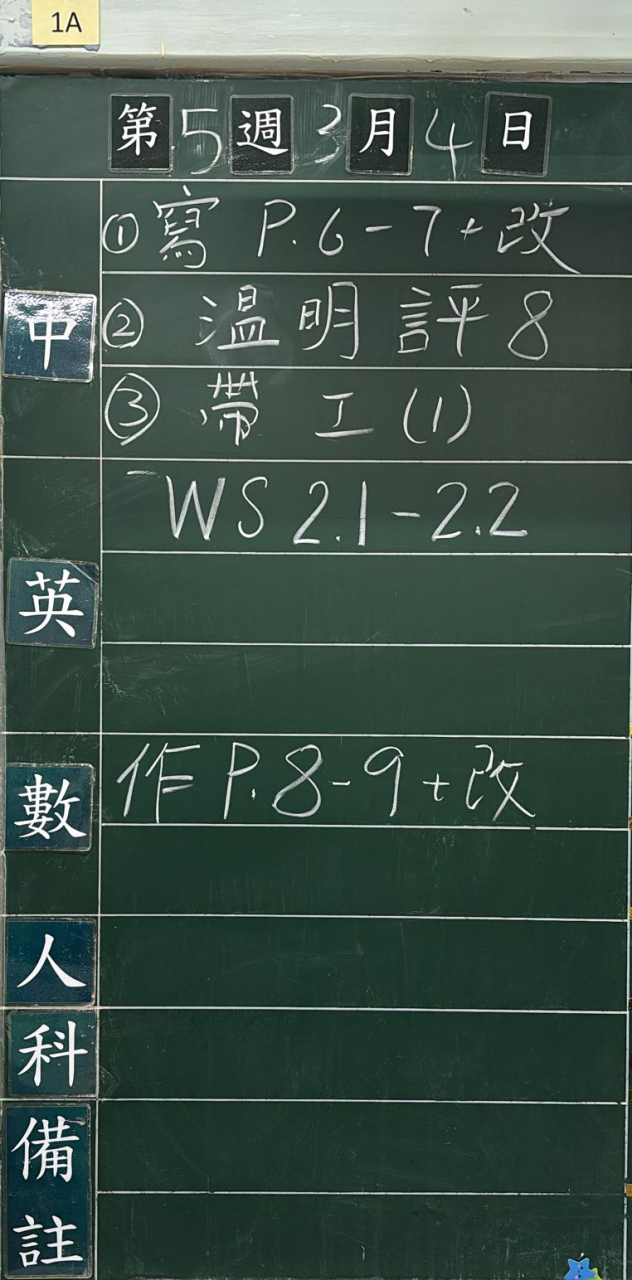 1A
第5週3月4日
中
①寫 P.6-7+改
②溫明評8
③帶工(1)
英
WS 2.1-2.2
數
作 P.8-9+改
人
科
備
註